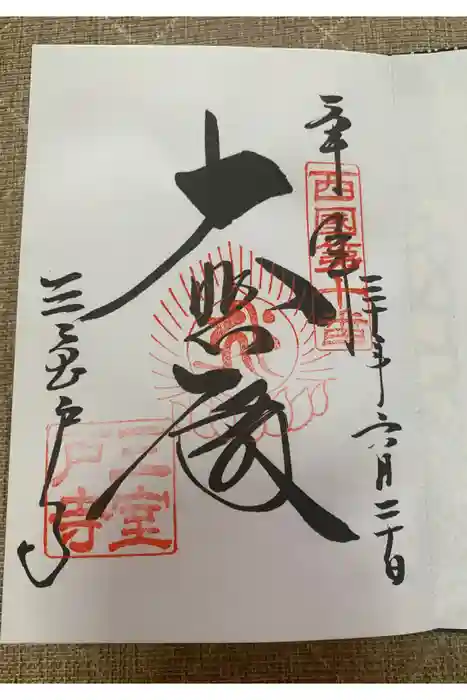 奉拝
西国第十番
三十年六月二十日
大悲殿
三室戸寺
三室戸寺